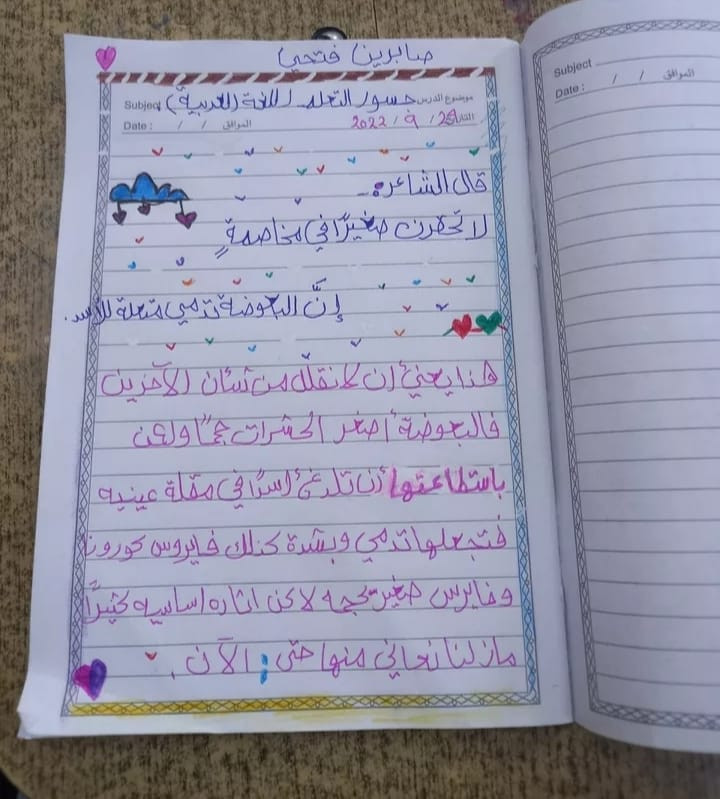 صابرين فتحي
Subject موضوع الدرس جسور التعلم (اللغة العربية)
Date : / / الموافق 2022/9/25
قال الشاعر:ـ
لا تحقرن صغيرًا في مخاصمةٍ
إنَّ البعوضة تدمي مقلة الأسد.
هذا يعني أن لا نقلل من شأن الآخرين
فالبعوضة أصغر الحشرات حجمًا ولكن
باستطاعتها أن تلدغ أسدًا في مقلة عينيه
فتجعلها تدمي وبشدة كذلك فايروس كورونا
وفايرس صغير بحجمه لاكن اثاره اساسيه كثيرًا
مازلنا نعاني منها حتى الآن.
Subject
Date : / / الموافق